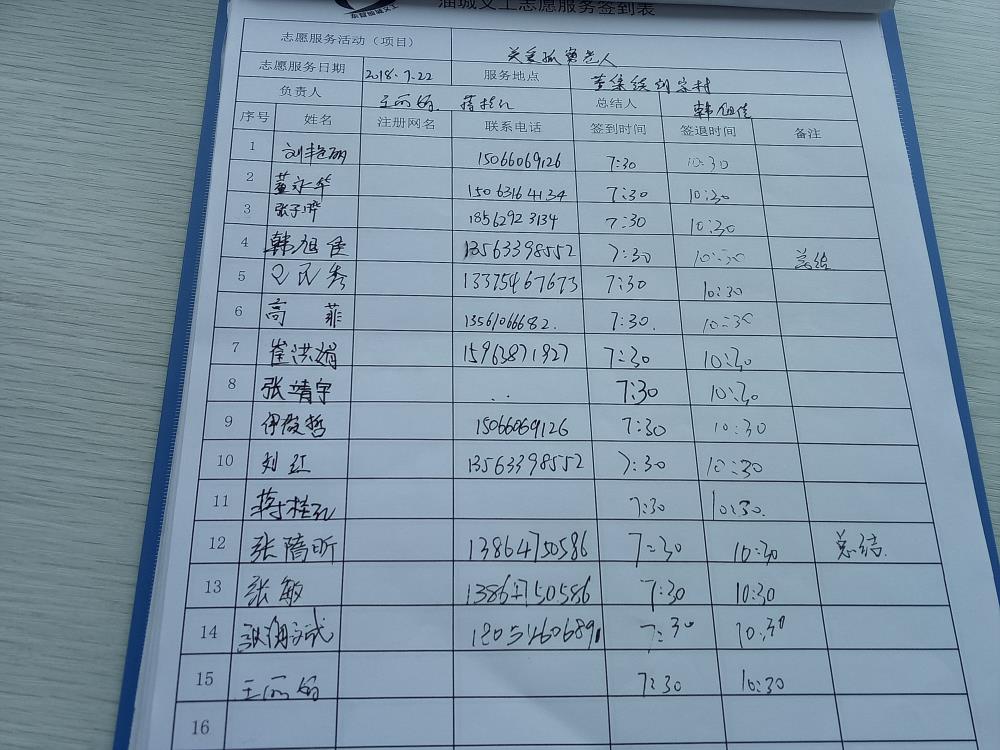 东营油城义工
油城义工志愿服务签到表
志愿服务活动（项目） 关爱孤寡老人
志愿服务日期 2018.7.22 服务地点 刘家村
负责人 王丽娟 蒋桂红 总结人 韩旭佳
序号 姓名 注册网名 联系电话 签到时间 签退时间 备注
1 刘艳丽 15066069126 7:30 10:30
2 董永华 15063164134 7:30 10:30
3 张子骅 18562923134 7:30 10:30
4 韩旭佳 13563398552 7:30 10:30 总结
5 民秀 13375467673 7:30 10:30
6 高菲 13561066682. 7:30. 10:30
7 崔洪娟 15963871927 7:30 10:30
8 张靖宇 .. 7:30 10:30
9 伊俊哲 15066069126 7:30 10:30
10 刘红 13563398552 7:30 10:30
11 蒋桂红 7:30 10:30.
12 张昕 13864750586 7:30 10:30 总结.
13 张敏 13864750586 7:30 10:30
14 18054606891 7:30 10:30
15 王丽娟 7:30 10:30
16